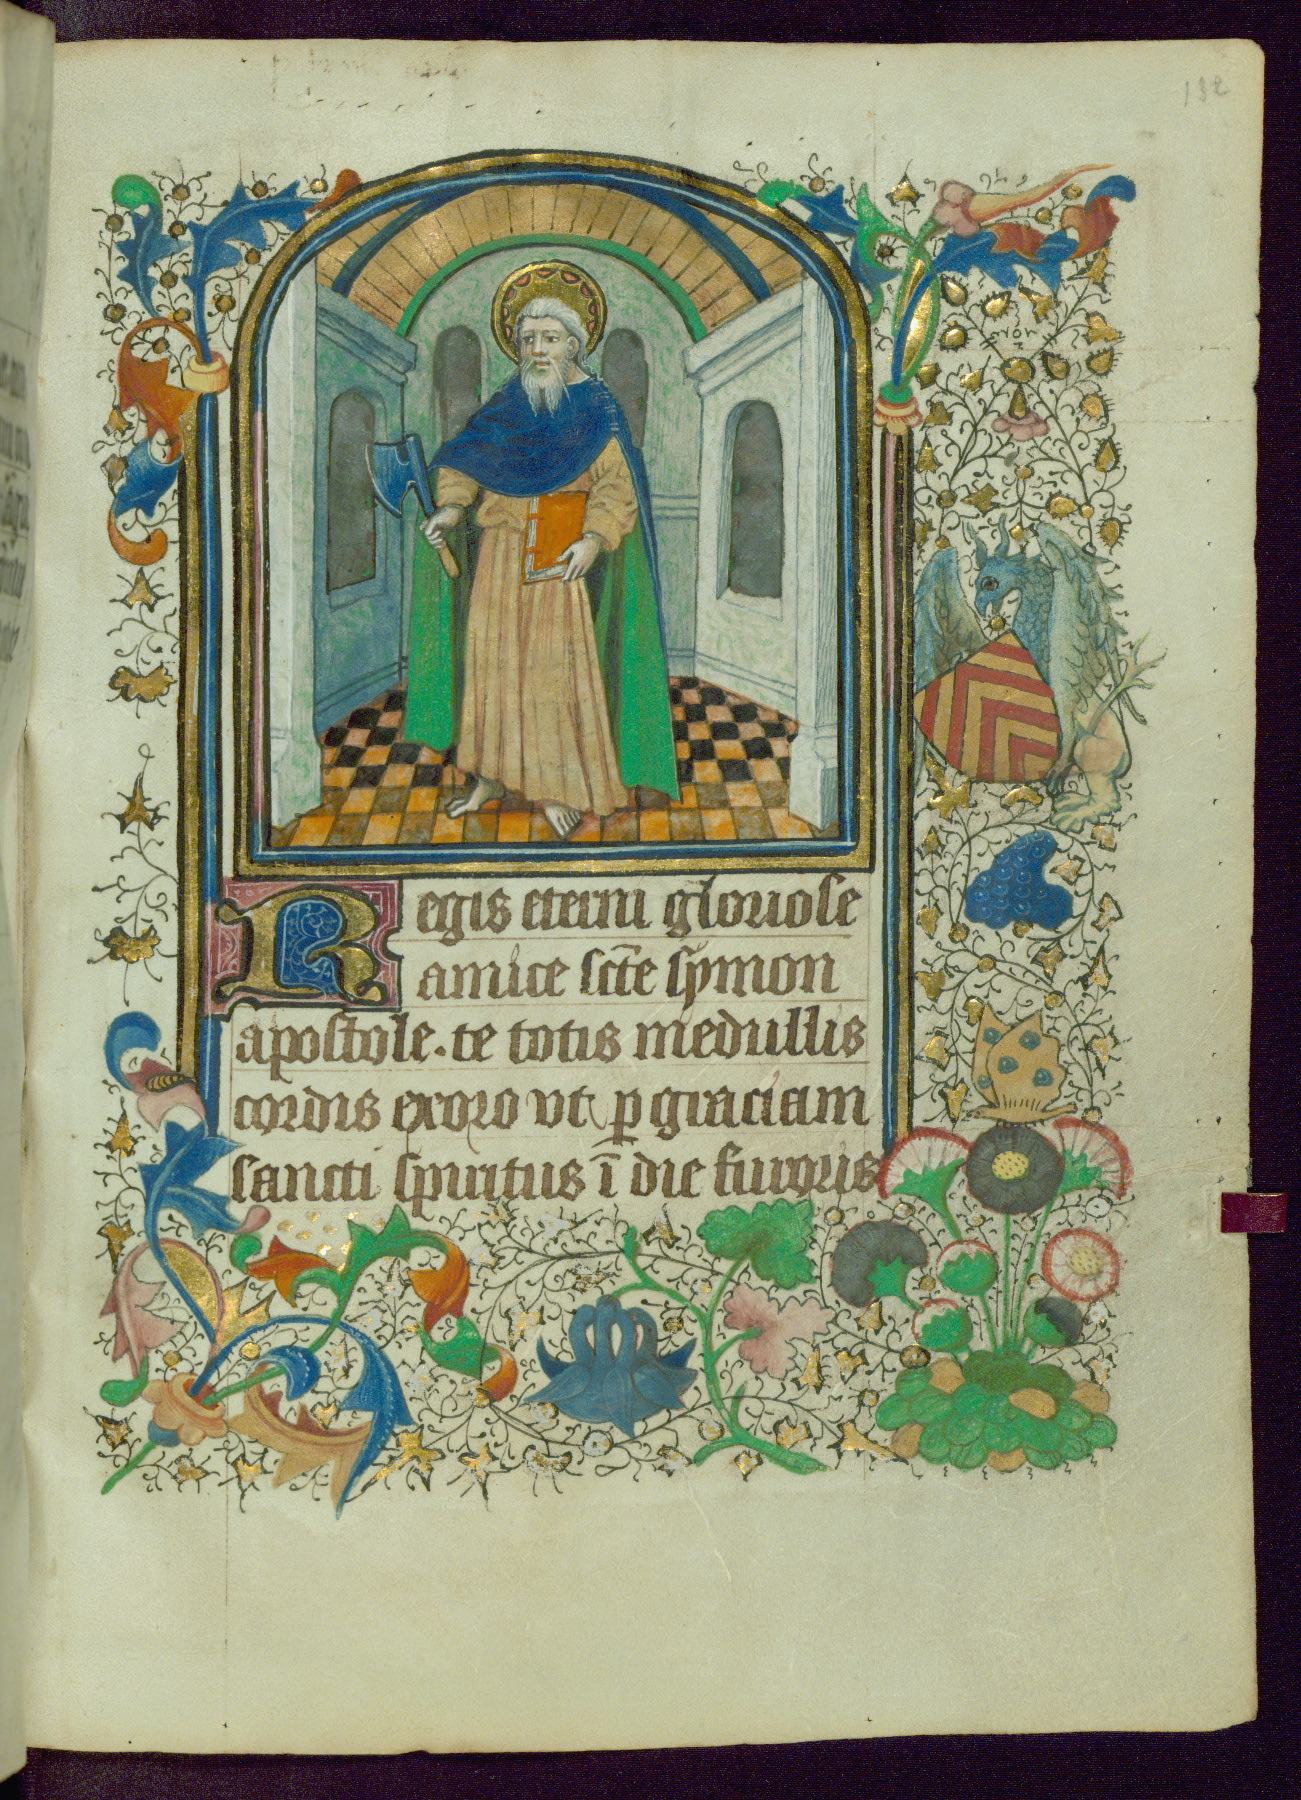 132
Regis eterni gloriose
amice sct̄e sẏmon
apostole. te totis medullis
cordis exoro vt ꝑ graciam
sancti spiritus ī die furoris